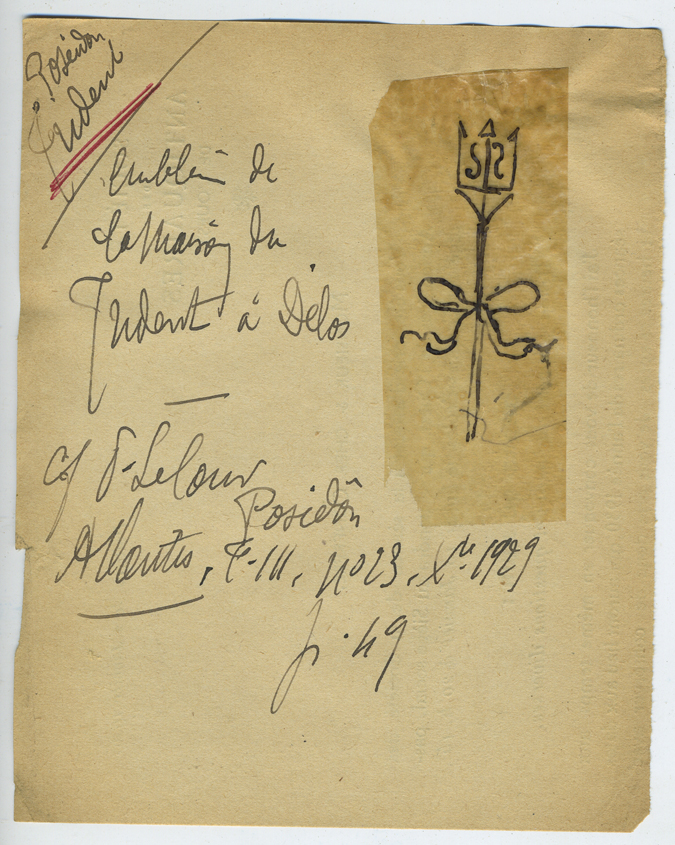 Poséidon
Trident
Emblème de
la Maison du
Trident à Délos
cf P. Lecour
Posidôn
Atlantis, T. III, no 23, Xbre 1929
p. 49